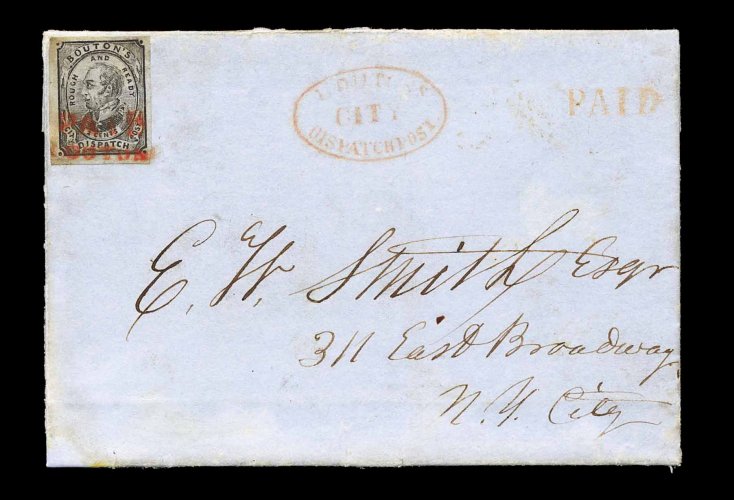 BOUTON'S
ROUGH AND READY
2 CENTS
CITY DISPATCH POST
BOUTON
BOUTON'S
CITY
DISPATCH POST
PAID
E. W. Smith Esqr
311 East Broadway
N. Y. City